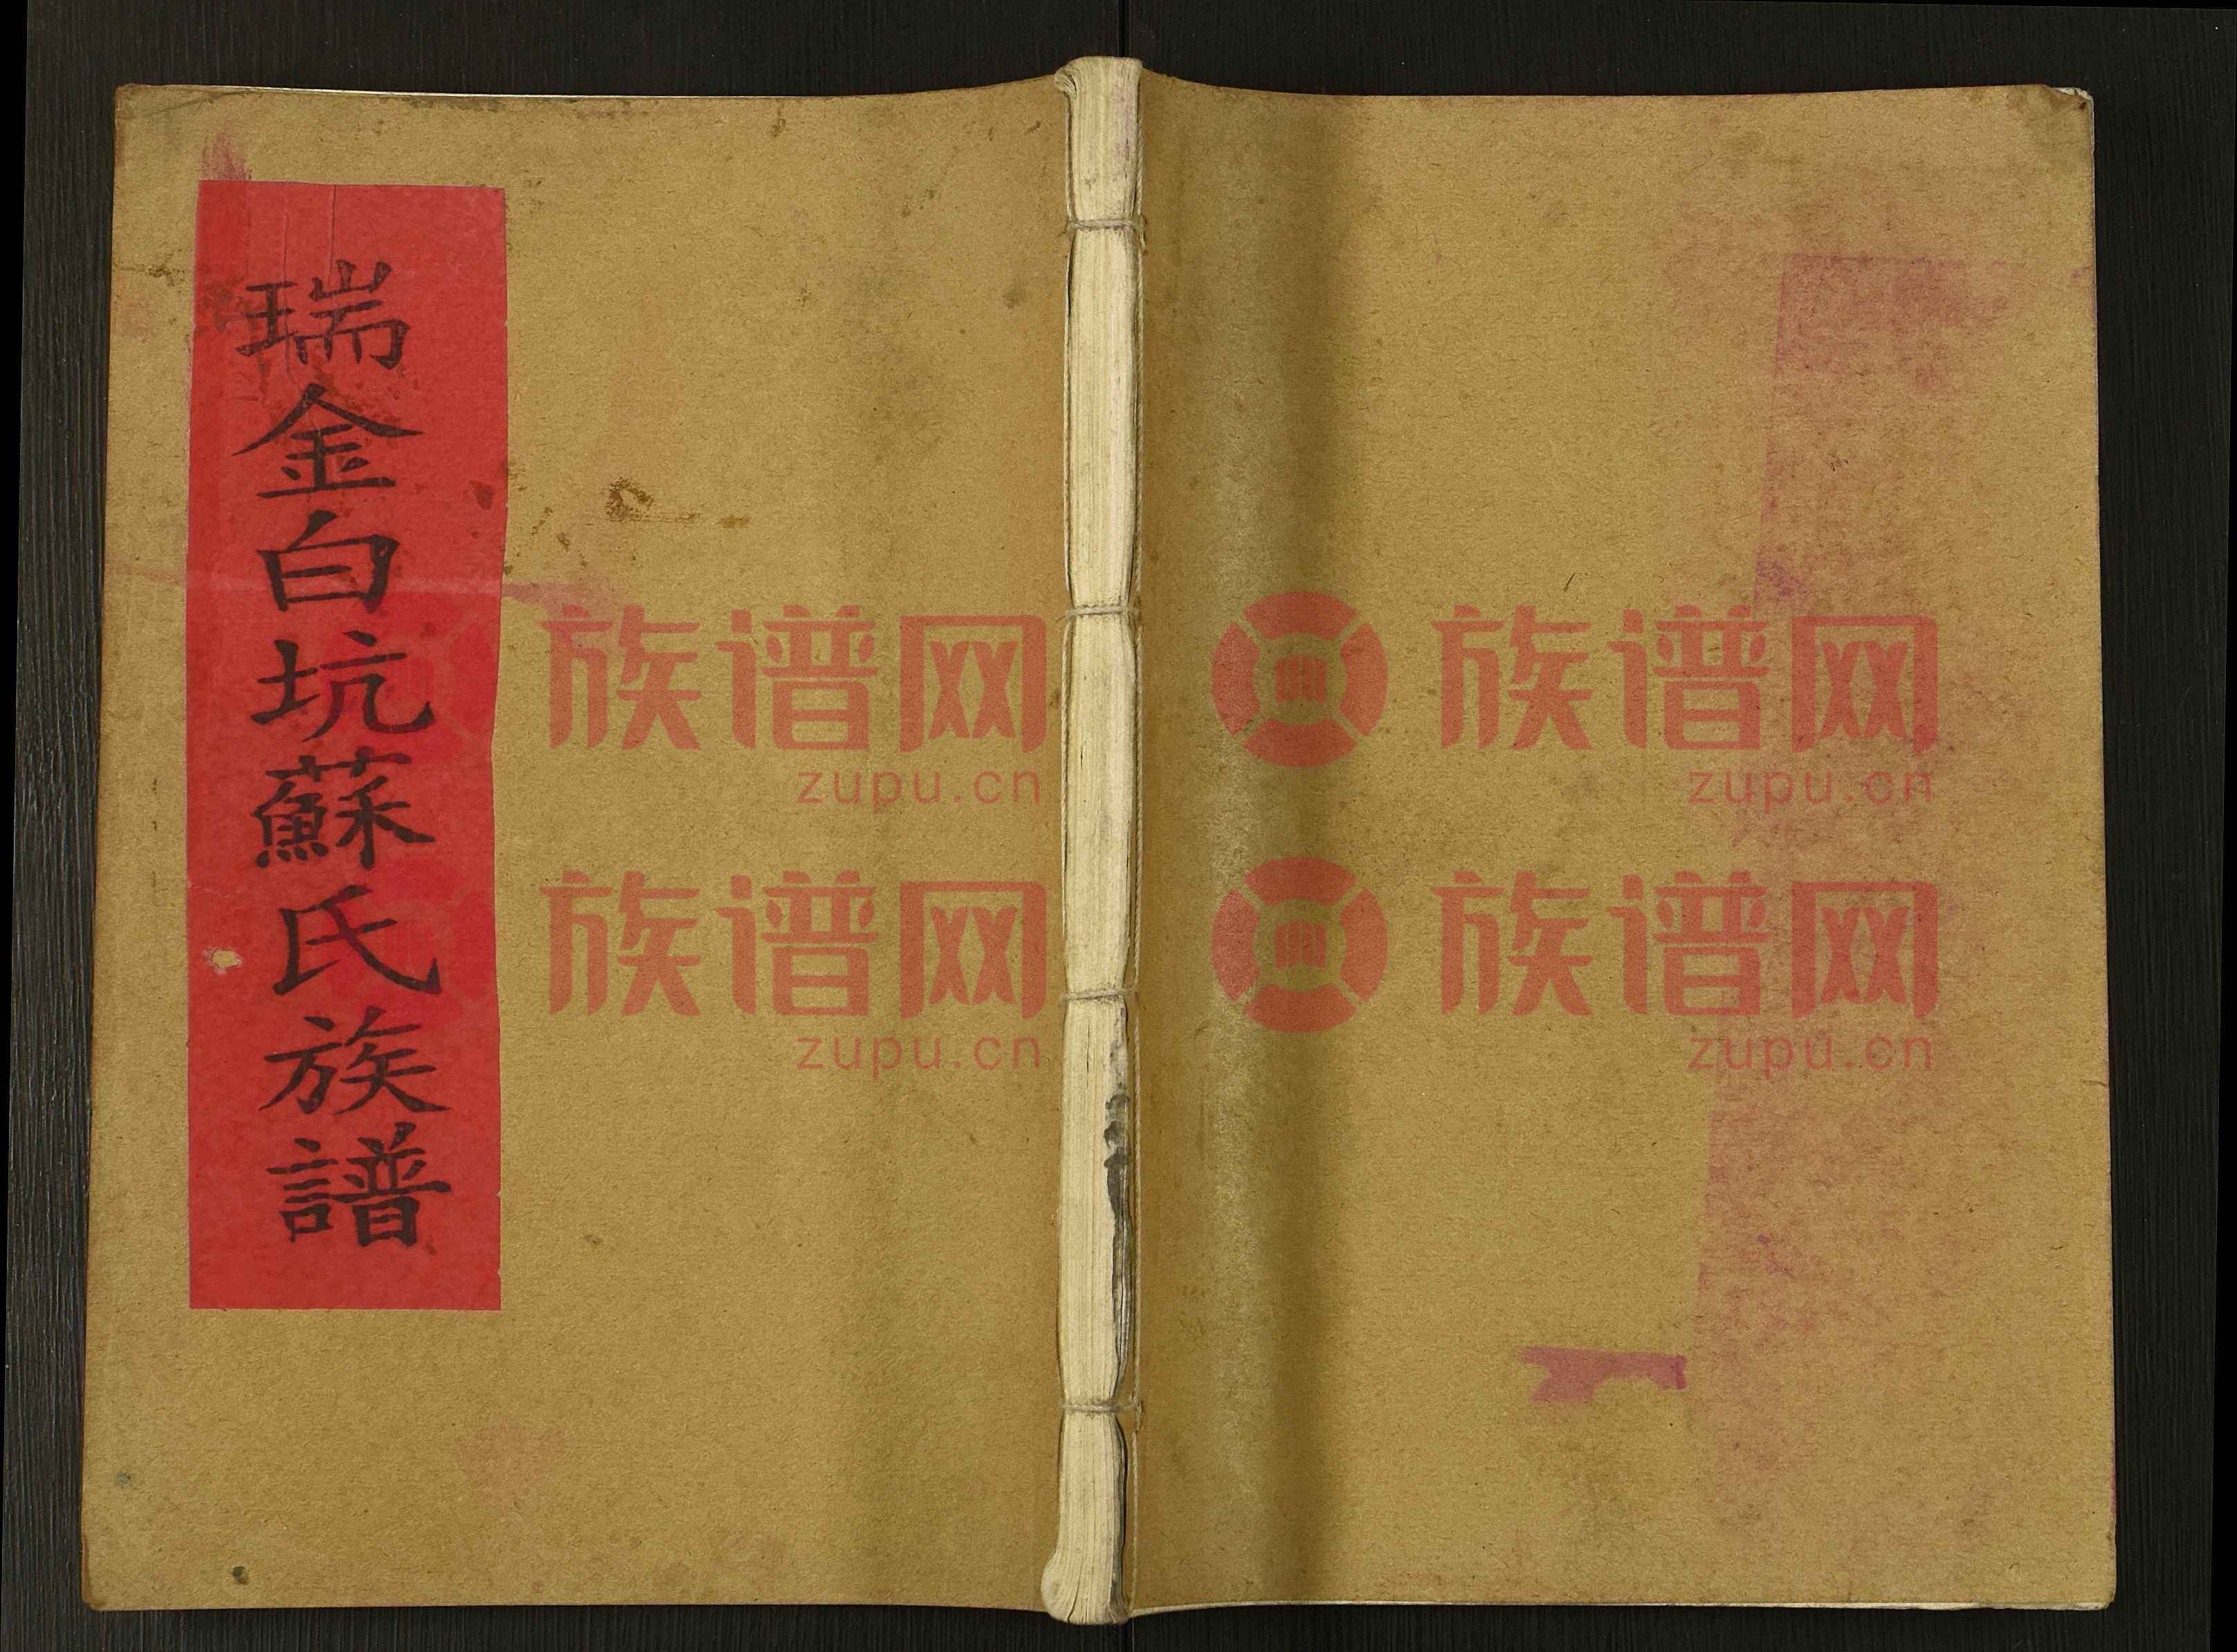 瑞金白坑蘇氏族譜
族谱网 族谱网
zupu.cn zupu.cn
族谱网 族谱网
zupu.cn zupu.cn